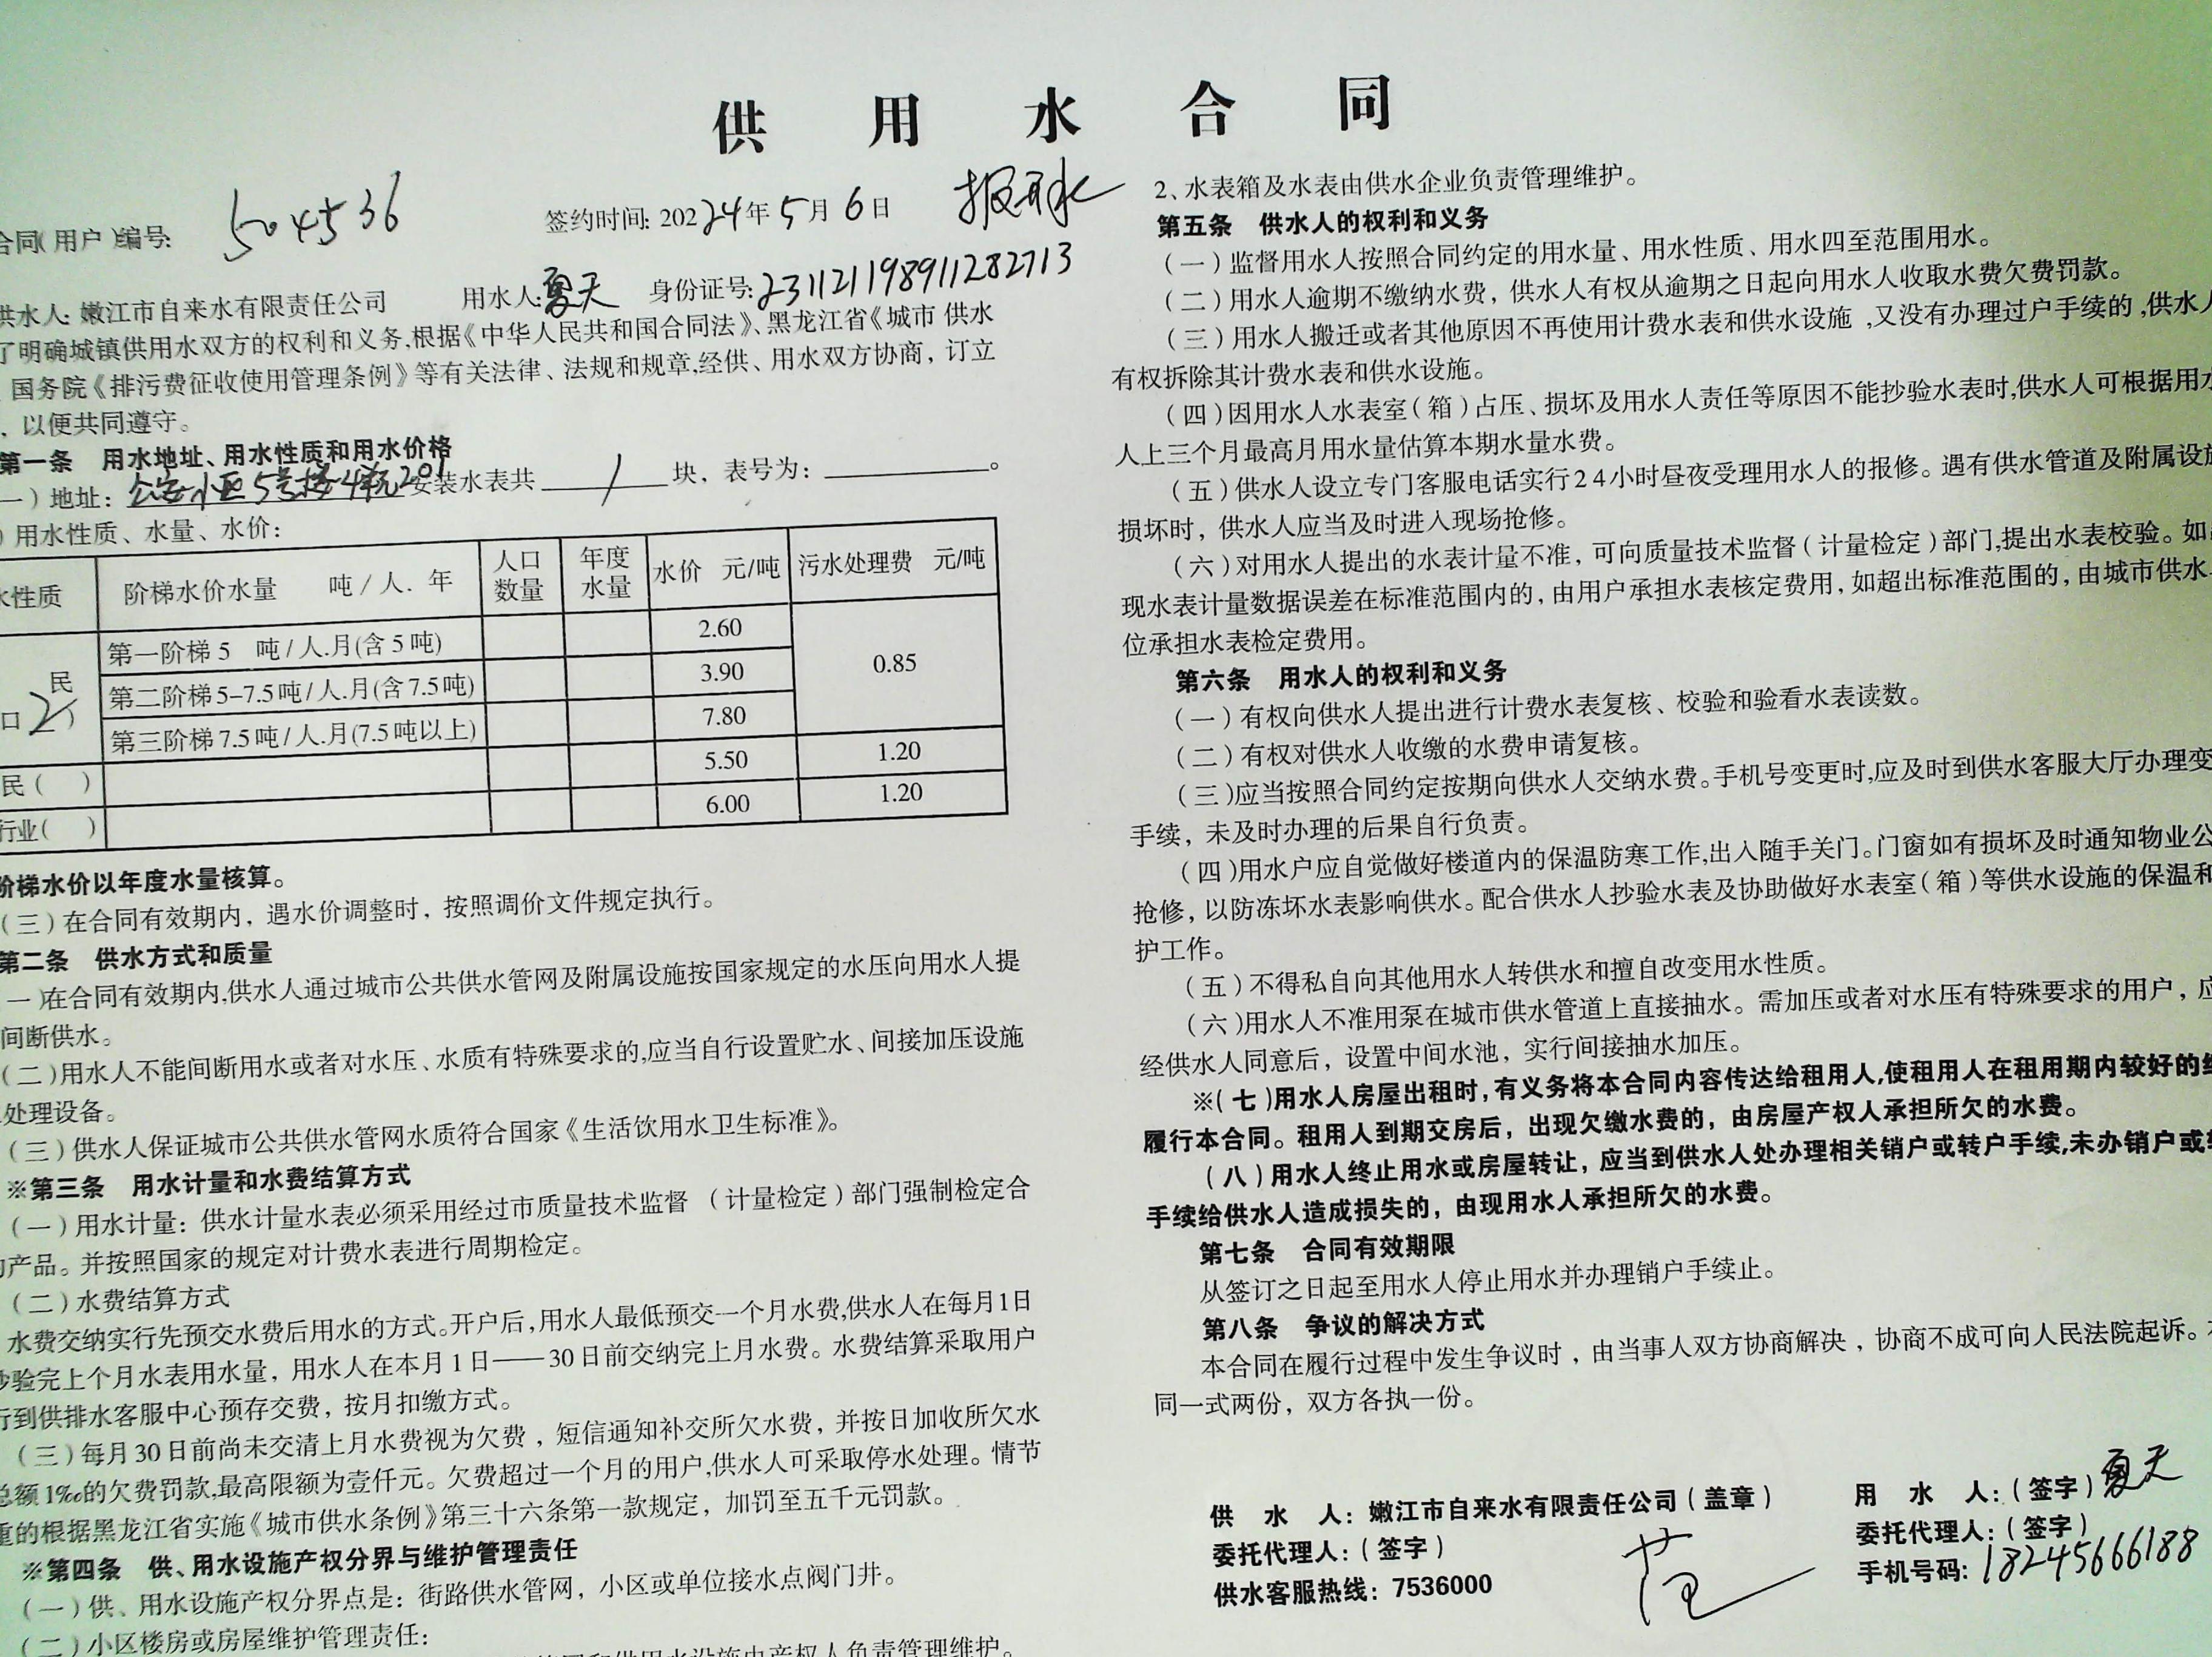 供用水合同
合同(用户)编号: 504536
签约时间: 202224年5月6日 报开水
供水人: 嫩江市自来水有限责任公司 用水人: 夏天 身份证号: 231121198911282713
了明确城镇供用水双方的权利和义务,根据《中华人民共和国合同法》、黑龙江省《城市 供水
国务院《排污费征收使用管理条例》等有关法律、法规和规章,经供、用水双方协商，订立
，以便共同遵守。
第一条 用水地址、用水性质和用水价格
一）地址：公安小区5号楼4单元201 安装水表共 1 块，表号为：。
）用水性质、水量、水价：
水性质 阶梯水价水量 吨/人.年 人口数量 年度水量 水价 元/吨 污水处理费 元/吨
民 口2) 第一阶梯5 吨/人.月(含5吨) 2.60 0.85
第二阶梯5-7.5吨/人.月(含7.5吨) 3.90
第三阶梯7.5吨/人.月(7.5吨以上) 7.80
民（ ） 5.50 1.20
行业（ ） 6.00 1.20
阶梯水价以年度水量核算。
（三）在合同有效期内，遇水价调整时，按照调价文件规定执行。
第二条 供水方式和质量
一)在合同有效期内,供水人通过城市公共供水管网及附属设施按国家规定的水压向用水人提
间断供水。
（二)用水人不能间断用水或者对水压、水质有特殊要求的,应当自行设置贮水、间接加压设施
处理设备。
（三）供水人保证城市公共供水管网水质符合国家《生活饮用水卫生标准》。
※第三条 用水计量和水费结算方式
（一）用水计量：供水计量水表必须采用经过市质量技术监督 （计量检定）部门强制检定合
的产品。并按照国家的规定对计费水表进行周期检定。
（二）水费结算方式
水费交纳实行先预交水费后用水的方式。开户后,用水人最低预交一个月水费,供水人在每月1日
抄验完上个月水表用水量，用水人在本月1日——30日前交纳完上月水费。水费结算采取用户
行到供排水客服中心预存交费，按月扣缴方式。
（三）每月30日前尚未交清上月水费视为欠费，短信通知补交所欠水费，并按日加收所欠水
总额1‰的欠费罚款,最高限额为壹仟元。欠费超过一个月的用户,供水人可采取停水处理。情节
重的根据黑龙江省实施《城市供水条例》第三十六条第一款规定，加罚至五千元罚款。
※第四条 供、用水设施产权分界与维护管理责任
（一）供、用水设施产权分界点是：街路供水管网，小区或单位接水点阀门井。
（二）小区楼房或房屋维护管理责任：
供用水设施由产权人负责管理维护。
2、水表箱及水表由供水企业负责管理维护。
第五条 供水人的权利和义务
（一）监督用水人按照合同约定的用水量、用水性质、用水四至范围用水。
（二）用水人逾期不缴纳水费，供水人有权从逾期之日起向用水人收取水费欠费罚款。
（三）用水人搬迁或者其他原因不再使用计费水表和供水设施,又没有办理过户手续的,供水人
有权拆除其计费水表和供水设施。
（四）因用水人水表室（箱）占压、损坏及用水人责任等原因不能抄验水表时,供水人可根据用水
人上三个月最高月用水量估算本期水量水费。
（五）供水人设立专门客服电话实行24小时昼夜受理用水人的报修。遇有供水管道及附属设施
损坏时，供水人应当及时进入现场抢修。
（六）对用水人提出的水表计量不准，可向质量技术监督（计量检定）部门,提出水表校验。如
现水表计量数据误差在标准范围内的，由用户承担水表核定费用，如超出标准范围的，由城市供水
位承担水表检定费用。
第六条 用水人的权利和义务
（一）有权向供水人提出进行计费水表复核、校验和验看水表读数。
（二）有权对供水人收缴的水费申请复核。
（三)应当按照合同约定按期向供水人交纳水费。手机号变更时,应及时到供水客服大厅办理变
手续，未及时办理的后果自行负责。
（四)用水户应自觉做好楼道内的保温防寒工作,出入随手关门。门窗如有损坏及时通知物业公
抢修，以防冻坏水表影响供水。配合供水人抄验水表及协助做好水表室（箱）等供水设施的保温和
护工作。
（五）不得私自向其他用水人转供水和擅自改变用水性质。
（六)用水人不准用泵在城市供水管道上直接抽水。需加压或者对水压有特殊要求的用户，应
经供水人同意后，设置中间水池，实行间接抽水加压。
※（七)用水人房屋出租时,有义务将本合同内容传达给租用人,使租用人在租用期内较好的
履行本合同。租用人到期交房后，出现欠缴水费的，由房屋产权人承担所欠的水费。
（八）用水人终止用水或房屋转让，应当到供水人处办理相关销户或转户手续,未办销户或
手续给供水人造成损失的，由现用水人承担所欠的水费。
第七条 合同有效期限
从签订之日起至用水人停止用水并办理销户手续止。
第八条 争议的解决方式
本合同在履行过程中发生争议时，由当事人双方协商解决，协商不成可向人民法院起诉。
同一式两份，双方各执一份。
供 水 人：嫩江市自来水有限责任公司（盖章） 用 水 人：（签字）夏天
委托代理人：（签字） 范 委托代理人：（签字）
供水客服热线：7536000 手机号码：18245666188